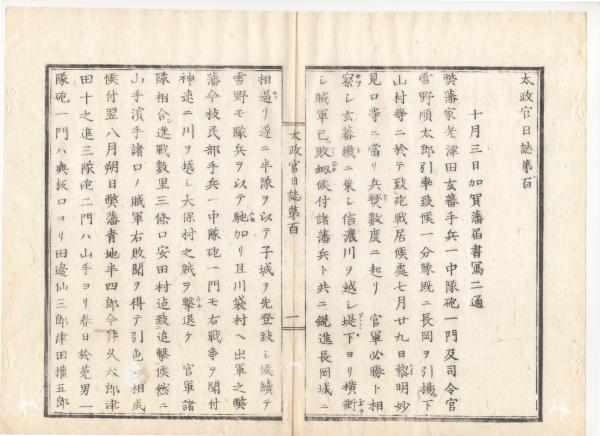 太政官日誌第百
十月三日加賀藩届書寫二通
弊藩家老津田玄蕃手兵一中隊砲一門及司令官
雪野順太郎引率致候一分隊既ニ長岡ヲ引揚下
山村等ニ於テ致砲戰居候處七月廿九日黎明妙
見口等ニ當リ兵聲數度ニ起リ 官軍必勝ト相
察シ玄蕃機ニ乗シ信濃川ヲ越シ堤下ヨリ横衝
シ賊軍已敗衂候付諸藩兵ト共ニ鋭進長岡城ニ
太政官日誌第百
一
相逼リ遂ニ半隊ヲ以テ子城ヲ先登致シ候續テ
雪野モ隊兵ヲ以テ馳加リ且川袋村ヘ出軍之弊
藩今枝民部手兵一中隊砲一門モ右戰争ヲ聞付
神速ニ川ヲ越シ大保村之賊ヲ撃退ケ 官軍諸
隊相合進戰數里三條口安田村迄致追撃候然ニ
山手濱手諸口ノ賊軍右敗聞ヲ得テ引色ニ相成
候付翌八月朔日弊藩青地半四郎今井久太郎津
田十之進三隊砲二門ハ山手ヨリ春日於莵男一
隊砲一門ハ與板口ヨリ田邉仙三郎津田權五郎